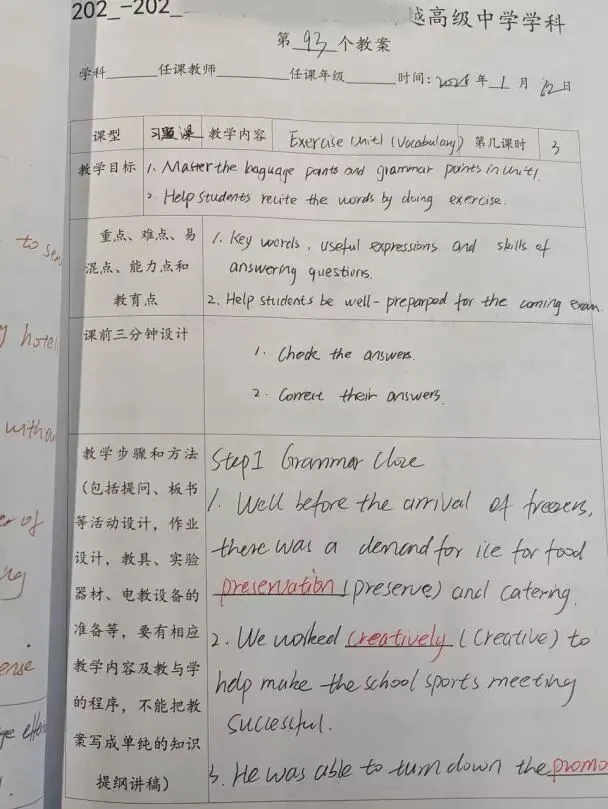 202_-202_
越高级中学学科
第 93 个教案
学科 任课教师 任课年级 时间: 年 1 月 12 日
课型 习题课 教学内容 Exercise Unit1 (Vocabulary) 第几课时 3
教学目标 1. Master the language points and grammar points in unit1.
2. Help students recite the words by doing exercise.
重点、难点、易 1. Key words, useful expressions and skills of
混点、能力点和 answering questions.
教育点 2. Help students be well-prepared for the coming exam.
课前三分钟设计
1. Check the answers.
2. Correct their answers.
教学步骤和方法 Step1 Grammar Cloze
(包括提问、板书 1. Well before the arrival of freezers,
等活动设计，作业 there was a demand for ice for food
设计，教具、实验 preservation (preserve) and catering.
器材、电教设备的
准备等，要有相应 2. We worked creatively (creative) to
教学内容及教与学 help make the school sports meeting
的程序，不能把教 successful.
案写成单纯的知识
提纲讲稿) 3. He was able to turn down the promo
to sen
hotel
withou
er of
ng
ense